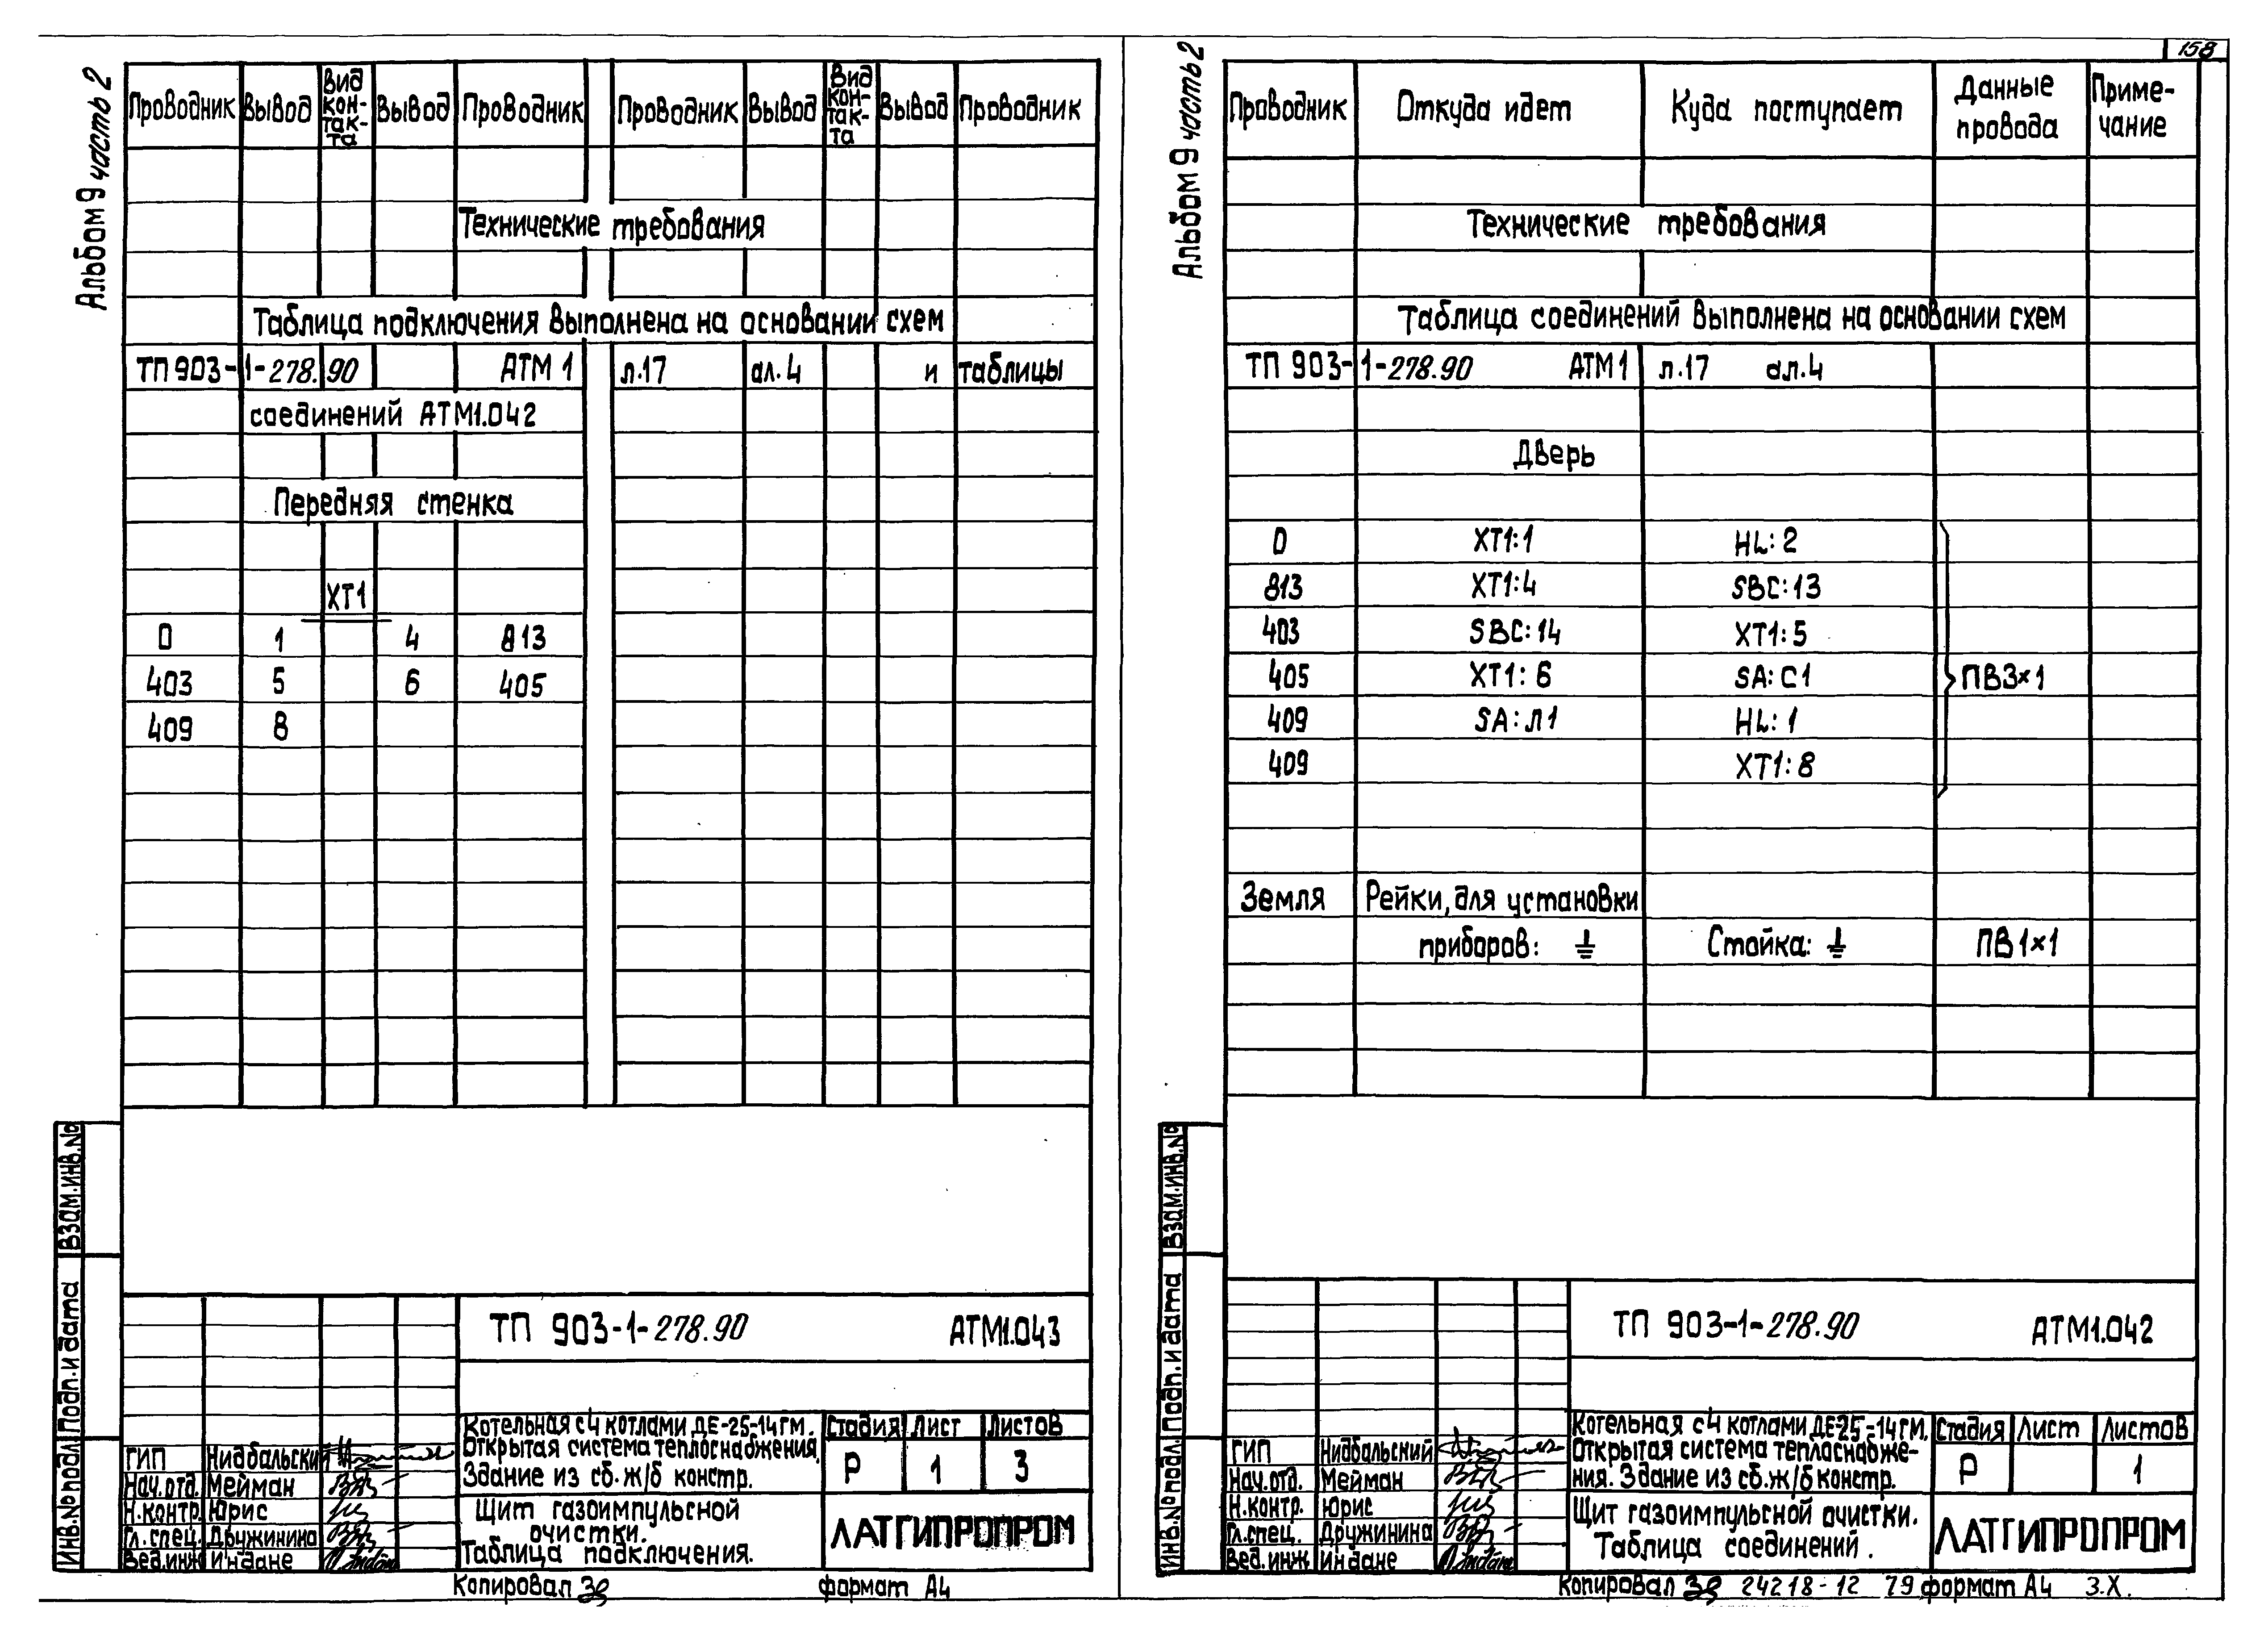 158
Альбом 9 часть 2
Проводник Вывод Вид кон-так-та Вывод Проводник Проводник Вывод Вид кон-так-та Вывод Проводник
Технические требования
Таблица подключения выполнена на основании схем
ТП 903-1-278.90 АТМ 1 л.17 ал.4 и таблицы
соединений АТМ1.042
Передняя стенка
ХТ1
0 1 4 813
403 5 6 405
409 8
Взам.инв.№
Подп.и дата
Инв.№подл.
ТП 903-1-278.90 АТМ1.043
Котельная с 4 котлами ДЕ-25-14ГМ. Стадия Лист Листов
Открытая система теплоснабжения.
Здание из сб.ж/б констр. Р 1 3
ГИП Нидбальский
Нач.отд. Мейман
Н.контр. Юрис
Гл.спец. Дружинина
Вед.инж Индане
Щит газоимпульсной
очистки.
Таблица подключения.
ЛАТГИПРОПРОМ
Копировал формат А4
Альбом 9 часть 2
Проводник Откуда идет Куда поступает Данные провода Приме-чание
Технические требования
Таблица соединений выполнена на основании схем
ТП 903-1-278.90 АТМ1 л.17 ал.4
Дверь
0 ХТ1:1 HL:2
813 ХТ1:4 SBC:13
403 SBC:14 ХТ1:5
405 ХТ1:6 SA:С1 ПВ3×1
409 SA:Л1 HL:1
409 ХТ1:8
Земля Рейки, для установки
приборов: ⏚ Стойка: ⏚ ПВ1×1
Взам.инв.№
Подп.и дата
Инв.№подл.
ТП 903-1-278.90 АТМ1.042
Котельная с 4 котлами ДЕ-25-14ГМ. Стадия Лист Листов
Открытая система теплоснабже-
ния. Здание из сб.ж/б констр. Р 1
ГИП Нидбальский
Нач.отд. Мейман
Н.контр. Юрис
Гл.спец. Дружинина
Вед.инж Индане
Щит газоимпульсной очистки.
Таблица соединений.
ЛАТГИПРОПРОМ
Копировал 24218-12 79 формат А4 З.Х.